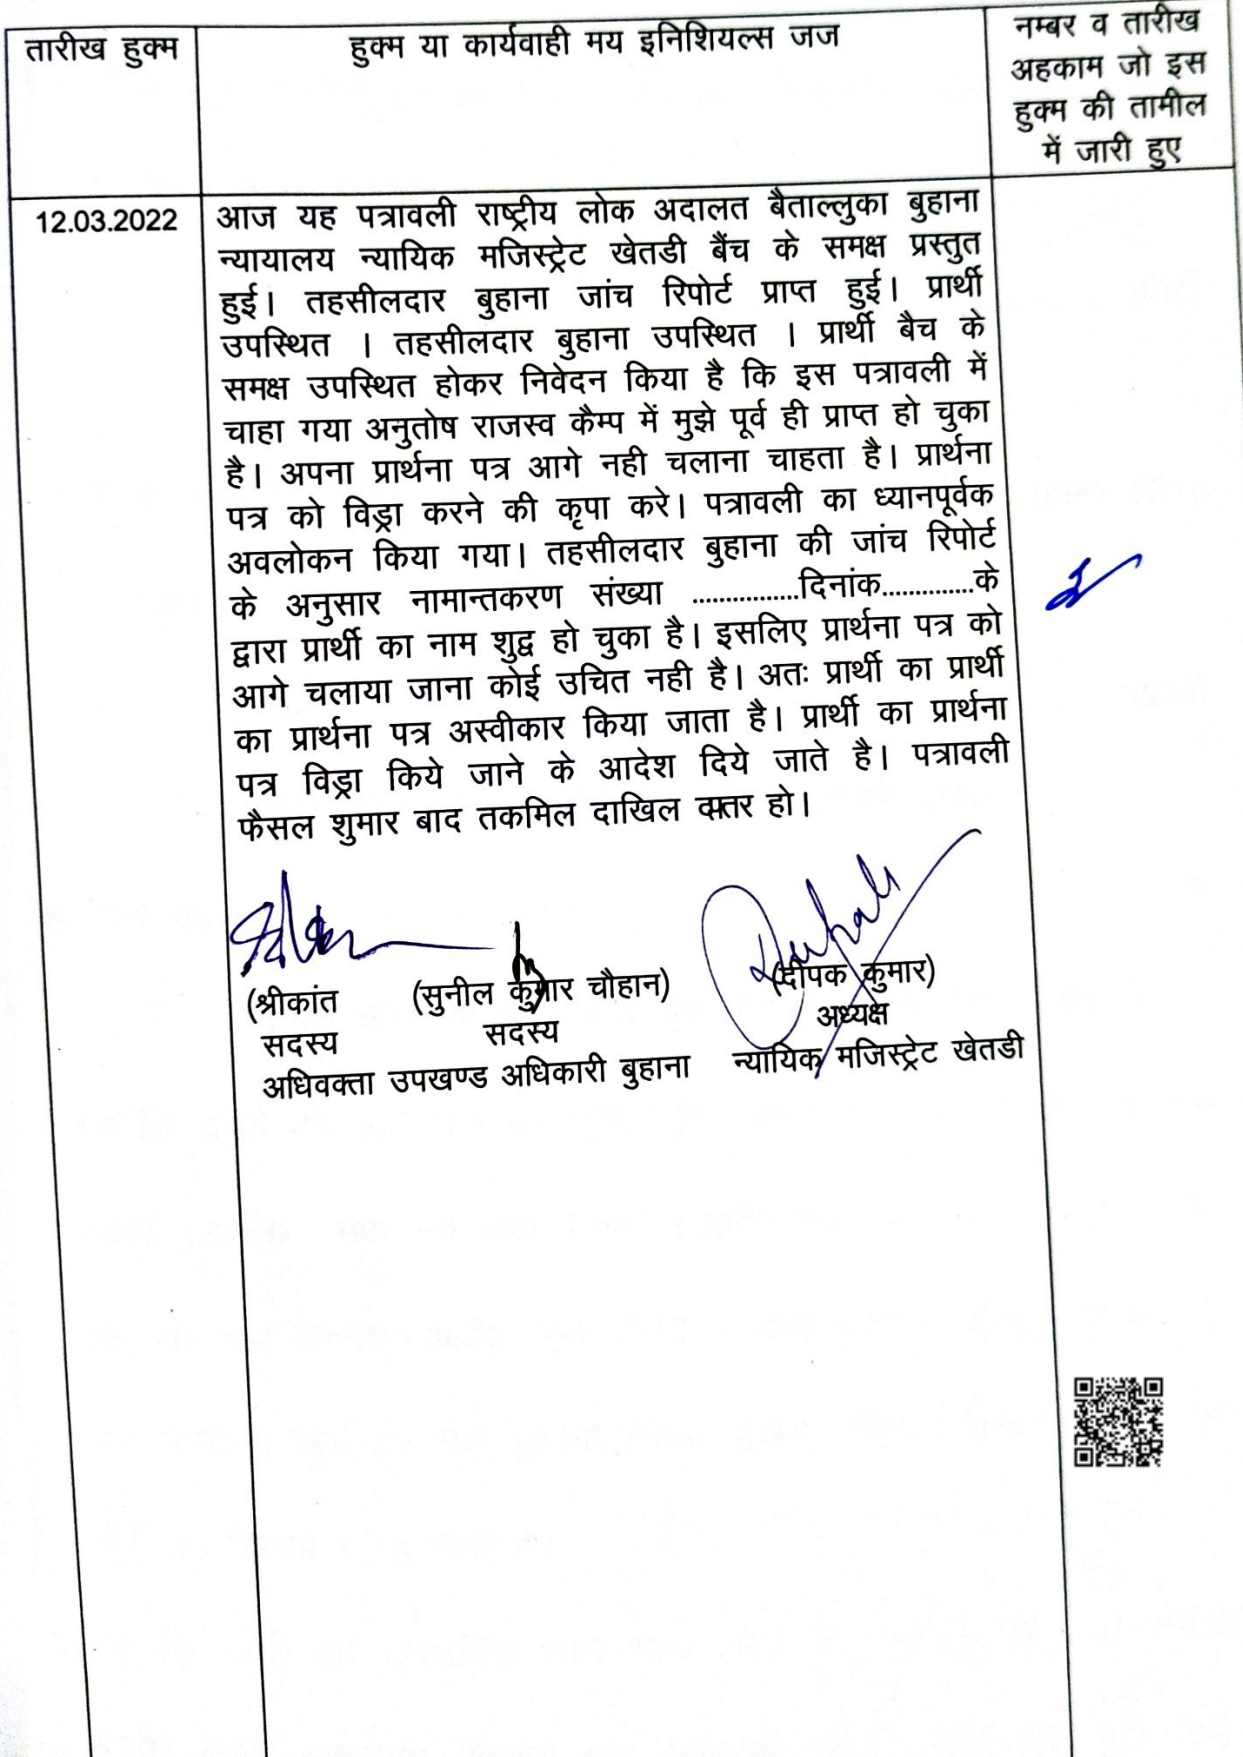 तारीख हुक्म
हुक्म या कार्यवाही मय इनिशियल्स जज
नम्बर व तारीख
अहकाम जो इस
हुक्म की तामील
में जारी हुए
12.03.2022
आज यह पत्रावली राष्ट्रीय लोक अदालत बैताल्लुका बुहाना
न्यायालय न्यायिक मजिस्ट्रेट खेतडी बैंच के समक्ष प्रस्तुत
हुई। तहसीलदार बुहाना जांच रिपोर्ट प्राप्त हुई। प्रार्थी
उपस्थित । तहसीलदार बुहाना उपस्थित । प्रार्थी बैच के
समक्ष उपस्थित होकर निवेदन किया है कि इस पत्रावली में
चाहा गया अनुतोष राजस्व कैम्प में मुझे पूर्व ही प्राप्त हो चुका
है। अपना प्रार्थना पत्र आगे नही चलाना चाहता है। प्रार्थना
पत्र को विड्रा करने की कृपा करे। पत्रावली का ध्यानपूर्वक
अवलोकन किया गया। तहसीलदार बुहाना की जांच रिपोर्ट
के अनुसार नामान्तकरण संख्या ................दिनांक..............के
द्वारा प्रार्थी का नाम शुद्व हो चुका है। इसलिए प्रार्थना पत्र को
आगे चलाया जाना कोई उचित नही है। अतः प्रार्थी का प्रार्थी
का प्रार्थना पत्र अस्वीकार किया जाता है। प्रार्थी का प्रार्थना
पत्र विड्रा किये जाने के आदेश दिये जाते है। पत्रावली
फैसल शुमार बाद तकमिल दाखिल दफ्तर हो।
(श्रीकांत (सुनील कुमार चौहान) (दीपक कुमार)
सदस्य सदस्य अध्यक्ष
अधिवक्ता उपखण्ड अधिकारी बुहाना न्यायिक मजिस्ट्रेट खेतडी